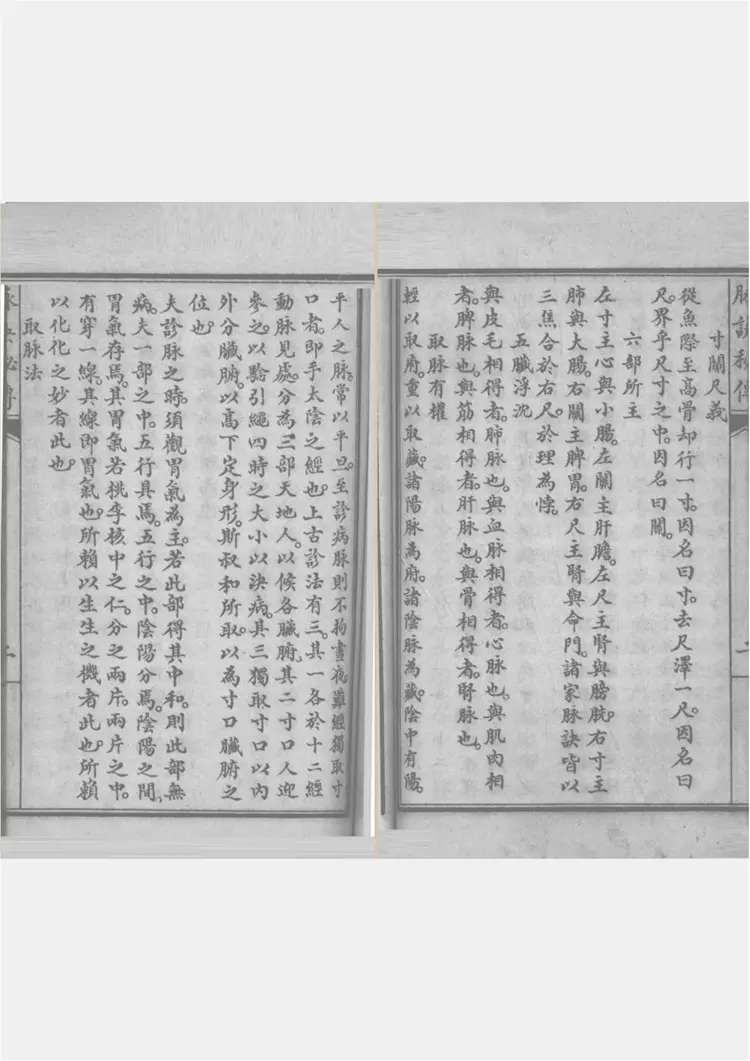 脉訣秘傳
二
寸關尺義
從魚際至高骨却行一寸。因名曰寸。去尺澤一尺。因名曰
尺。界乎尺寸之中。因名曰關。
六部所主
左寸主心與小腸。左關主肝膽。左尺主腎與膀胱。右寸主
肺與大腸。右關主脾胃。右尺主腎與命門。諸家脉訣皆以
三焦合於右尺。於理為悖。
五臟浮沈
與皮毛相得者。肺脉也。與血脉相得者。心脉也。與肌肉相
者。脾脉也。與筋相得者。肝脉也。與骨相得者。腎脉也。
取脉有權
輕以取府。重以取藏。諸陽脉為府。諸陰脉為藏。陰中有陽。
平人之脉。常以平旦。至診病脉則不拘晝夜。雖經獨取寸
口者。即手太陰之經也。上古診法有三。其一各於十二經
動脉見處。分為三部天地人。以候各臟腑。其二寸口人迎
參之以黔引繩四時之大小以决病。其三獨取寸口以內
外分臟腑。以高下定身形。斯叔和所取。以為寸口臟腑之
位也。
夫診脉之時。須觀胃氣為主。若此部得其中和。則此部無
病。夫一部之中。五行具焉。五行之中。陰陽分焉。陰陽之間、
胃氣存焉。其胃氣若桃李核中之仁。分之兩片。兩片之中。
有穿一線。其線即胃氣也。所賴以生生之機者此也。所賴
以化化之妙者此也。
取脉法
二